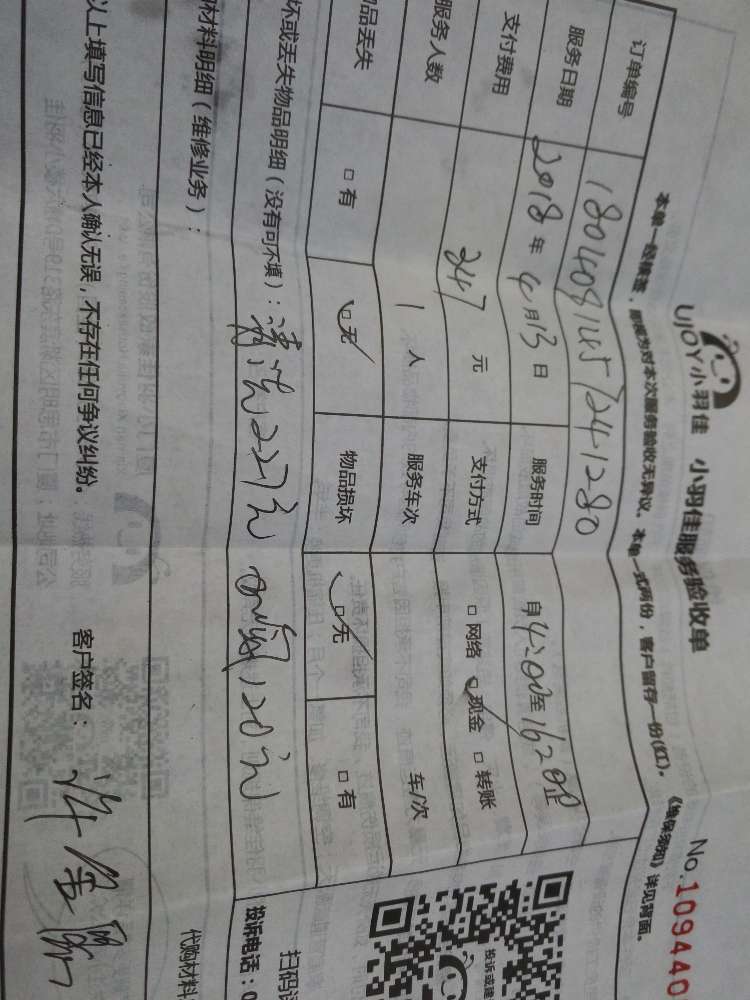 UJOY小羽佳 小羽佳服务验收单 No.109440
本单一经核签，即视为对本次服务验收无异议。本单一式两份，客户留存一份(红)。《维保须知》详见背面。
订单编号 180408145724-1280
服务日期 2018年4月13日 服务时间
支付费用 247元 支付方式 □网络 □现金 □转账
服务人数 1人 服务车次 车/次
物品丢失 □有 □无 物品损坏 □无 □有
坏或丢失物品明细（没有可不填）：清洗227元 加氟120元
材料明细（维修业务）：
代购材料
以上填写信息已经本人确认无误，不存在任何争议纠纷。 客户签名：
扫码
投诉电话：0
投诉或建